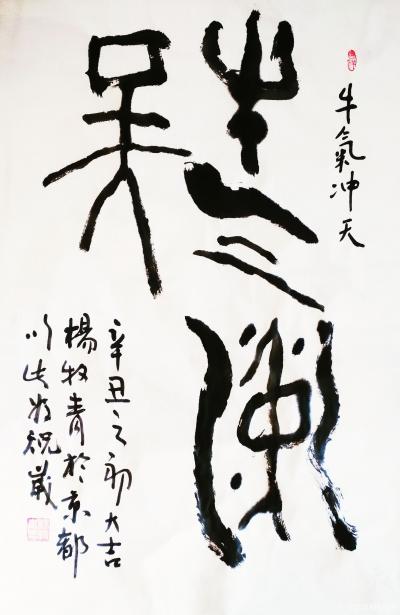 牛氣冲天
牛气衝
天
辛丑之初大吉
楊牧青於京都
以此為祝歲